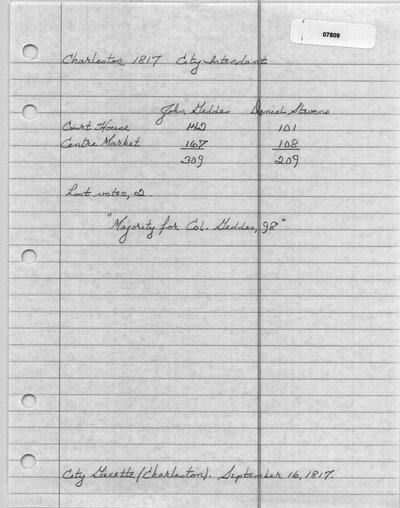 07809
Charleston 1817 City Intendant
John Geddes Daniel Stevens
Court House 142 101
Centre Market 167 108
309 209
Lost votes, 2
"Majority for Col. Geddes, 98"
City Gazette (Charleston). September 16, 1817.